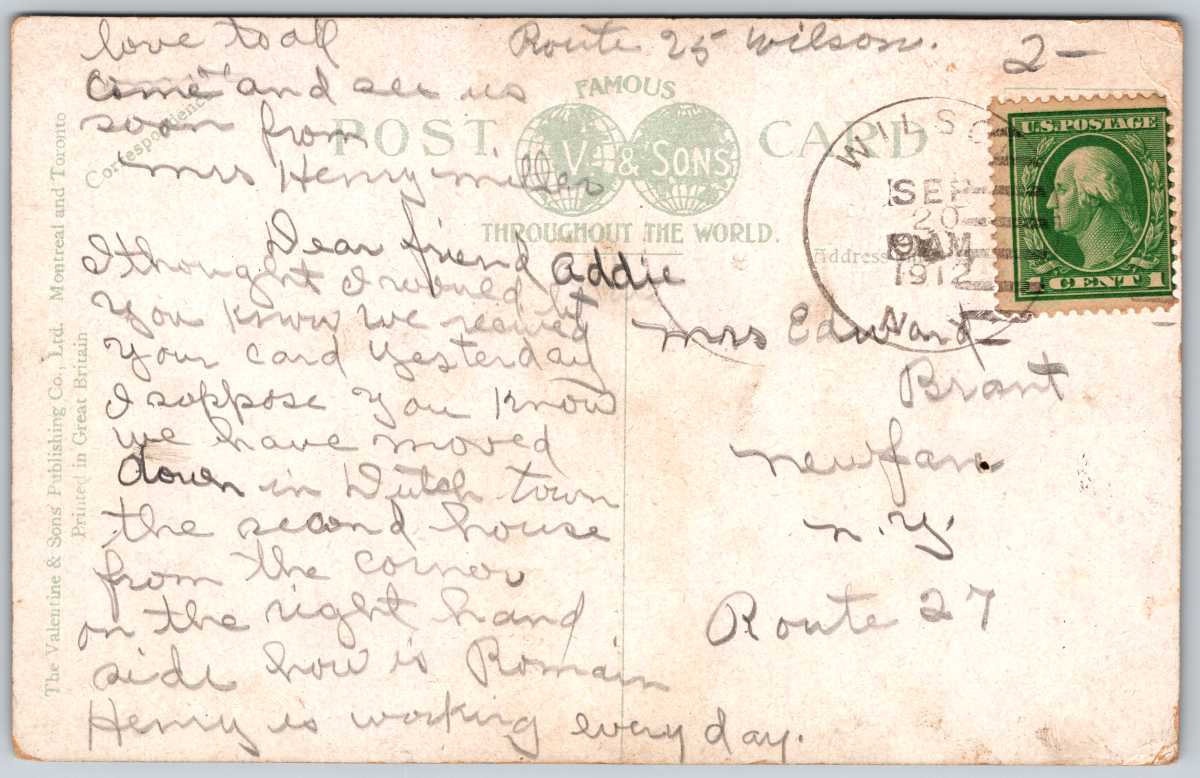 love to all
come and see us
soon from
mrs Henry miller
Route 25 Wilson.
2-
FAMOUS
POST CARD
V. & SONS
THROUGHOUT THE WORLD.
Correspondence
Address
WILSO
SEP
20
9 AM
1912
N.
U.S. POSTAGE
1 CENT 1
Dear friend Addie
I thought I would let
you know we received
your card yesterday
I suppose you know
we have moved
down in Dutch town
the second house
from the corner
on the right hand
side how is Romain
Henry is working every day.
mrs Edward
Brant
newfane
n.y.
Route 27
The Valentine & Sons' Publishing Co., Ltd. Montreal and Toronto
Printed in Great Britain